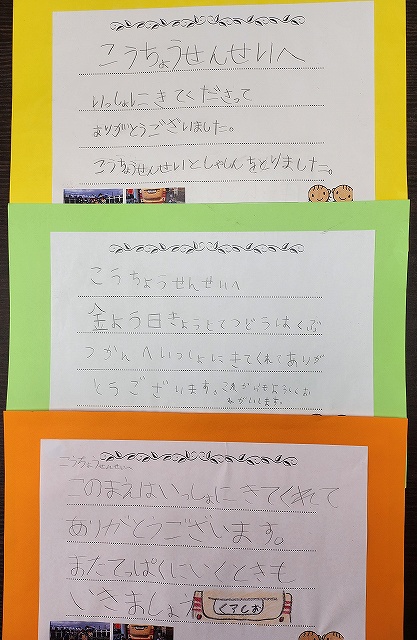 こうちょうせんせいへ
いっしょにきてくださって
ありがとうございました。
こうちょうせんせいとしゃしんをとりました。
こうちょうせんせいへ
金よう日きょうとてつどうはくぶ
つかんへいっしょにきてくれてありが
とうございます。これからもよろしくお
ねがいします。
こうちょうせんせいへ
このまえはいっしょにきてくれて
ありがとうございます。
またてっぱくにいくときも
いきましょう
くろしお